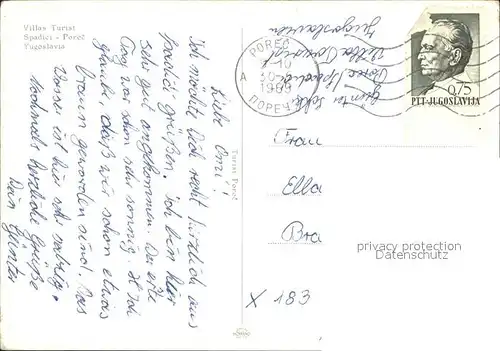 Villas Turist
Spadici - Poreč
Yugoslavia
Liebe Omi!!
Ich möchte Dich recht herzlich aus
Spadici grüßen. Ich bin hier
sehr gut angekommen. Der erste
Tag war schon sehr sonnig. Ich
glaube, daß wir schon etwas
braun geworden sind. Das
Wasser ist hier sehr salzig.
Nochmals herzliche Grüße
Dein Günter
Turist Poreč
POREČ
9-10
A 30
1969
ПОРЕЧ
Günter
Poreč, Spadici
Villa Turist
Jugoslavien
0,75
PTT-JUGOSLAVIJA
Frau
Ella
Bra
privacy protection
Datenschutz
X 183